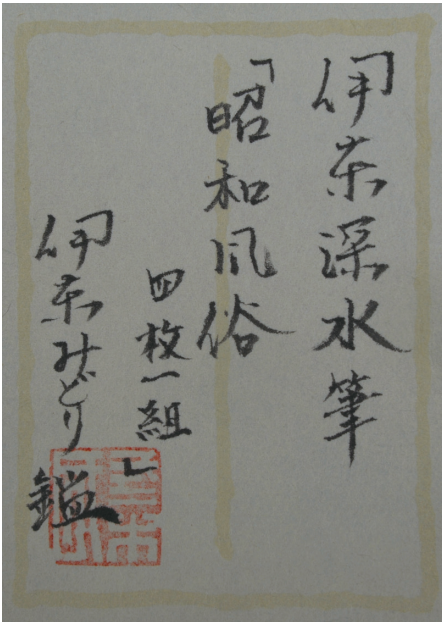 伊東深水筆
「昭和風俗
四枚一組」
伊東みどり鑑